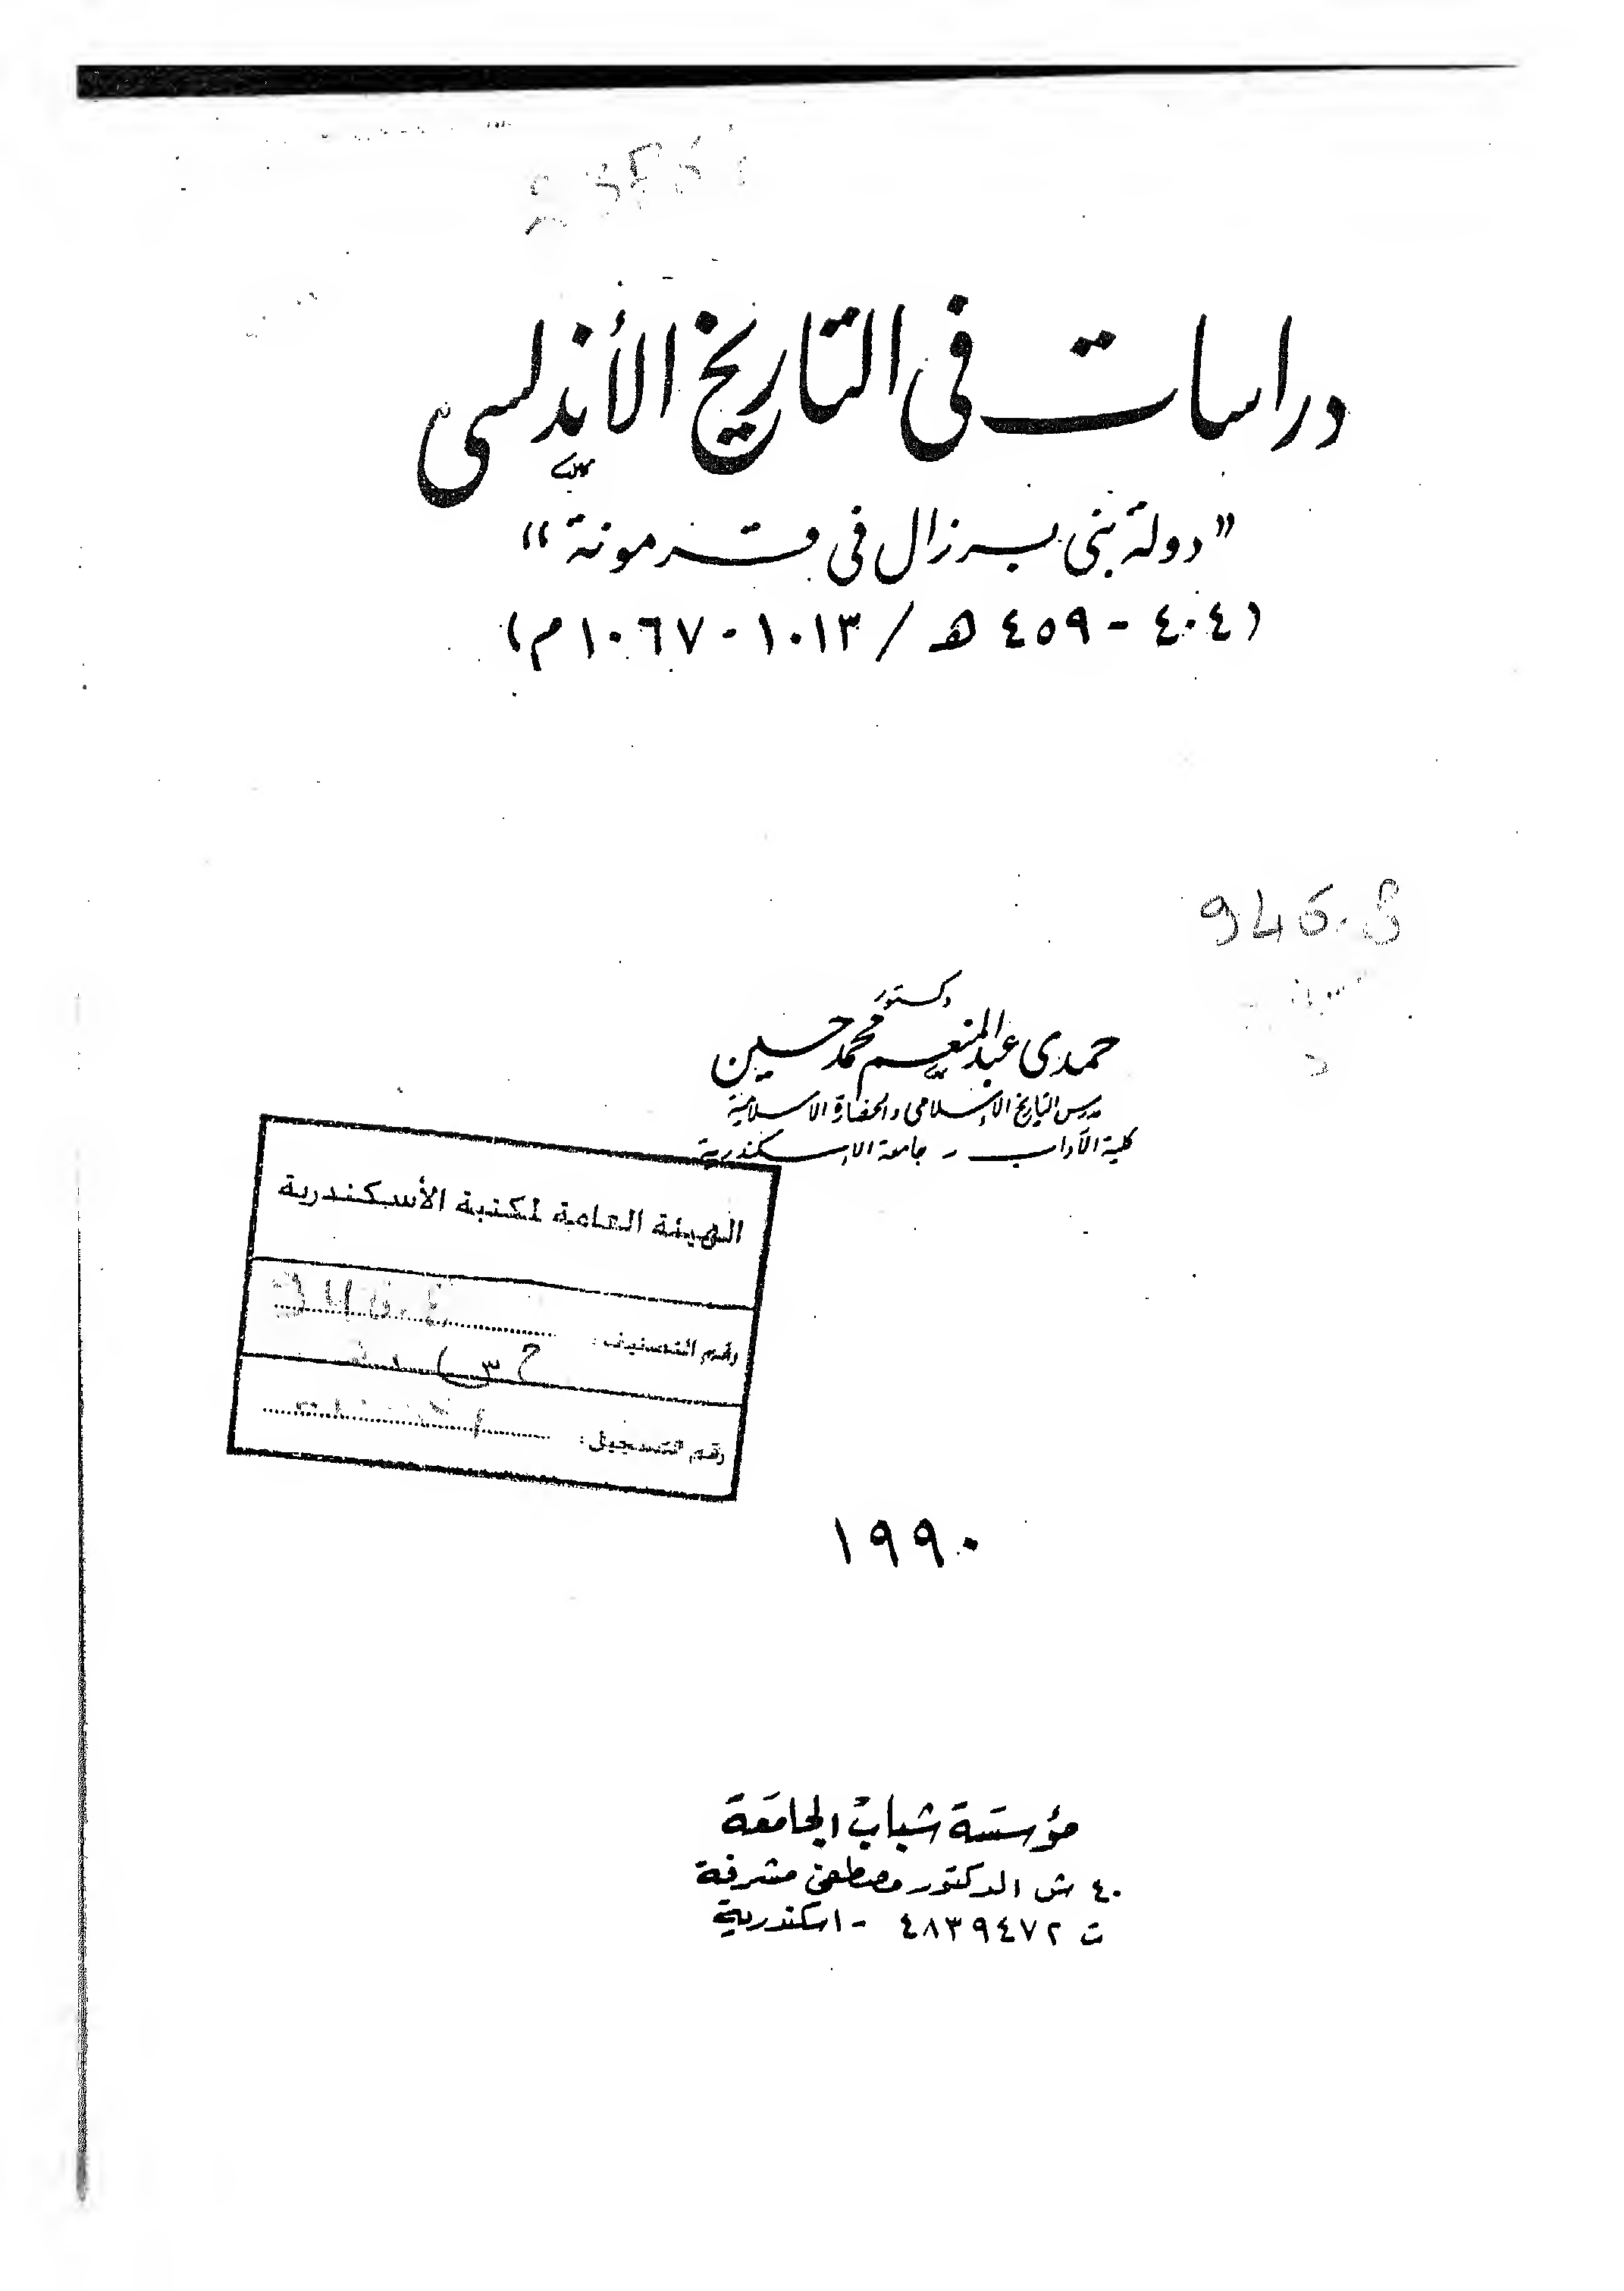 دراسات في التاريخ الأندلسي
"دولة بني برزال في قرمونة"
(٤٠٤ - ٤٥٩ هـ / ١٠١٣ - ١٠٦٧ م)
946.8
دكتور
حمدي عبد المنعم محمد حسين
مدرس التاريخ الإسلامي والحضارة الاسلامية
كلية الآداب - جامعة الإسكندرية
الهيئة العامة لمكتبة الأسكندرية
رقم التصنيف:
رقم التسجيل:
١٩٩٠
مؤسسة شباب الجامعة
٤٠ ش الدكتور مصطفى مشرفة
ت ٤٨٣٩٤٧٢ - اسكندرية